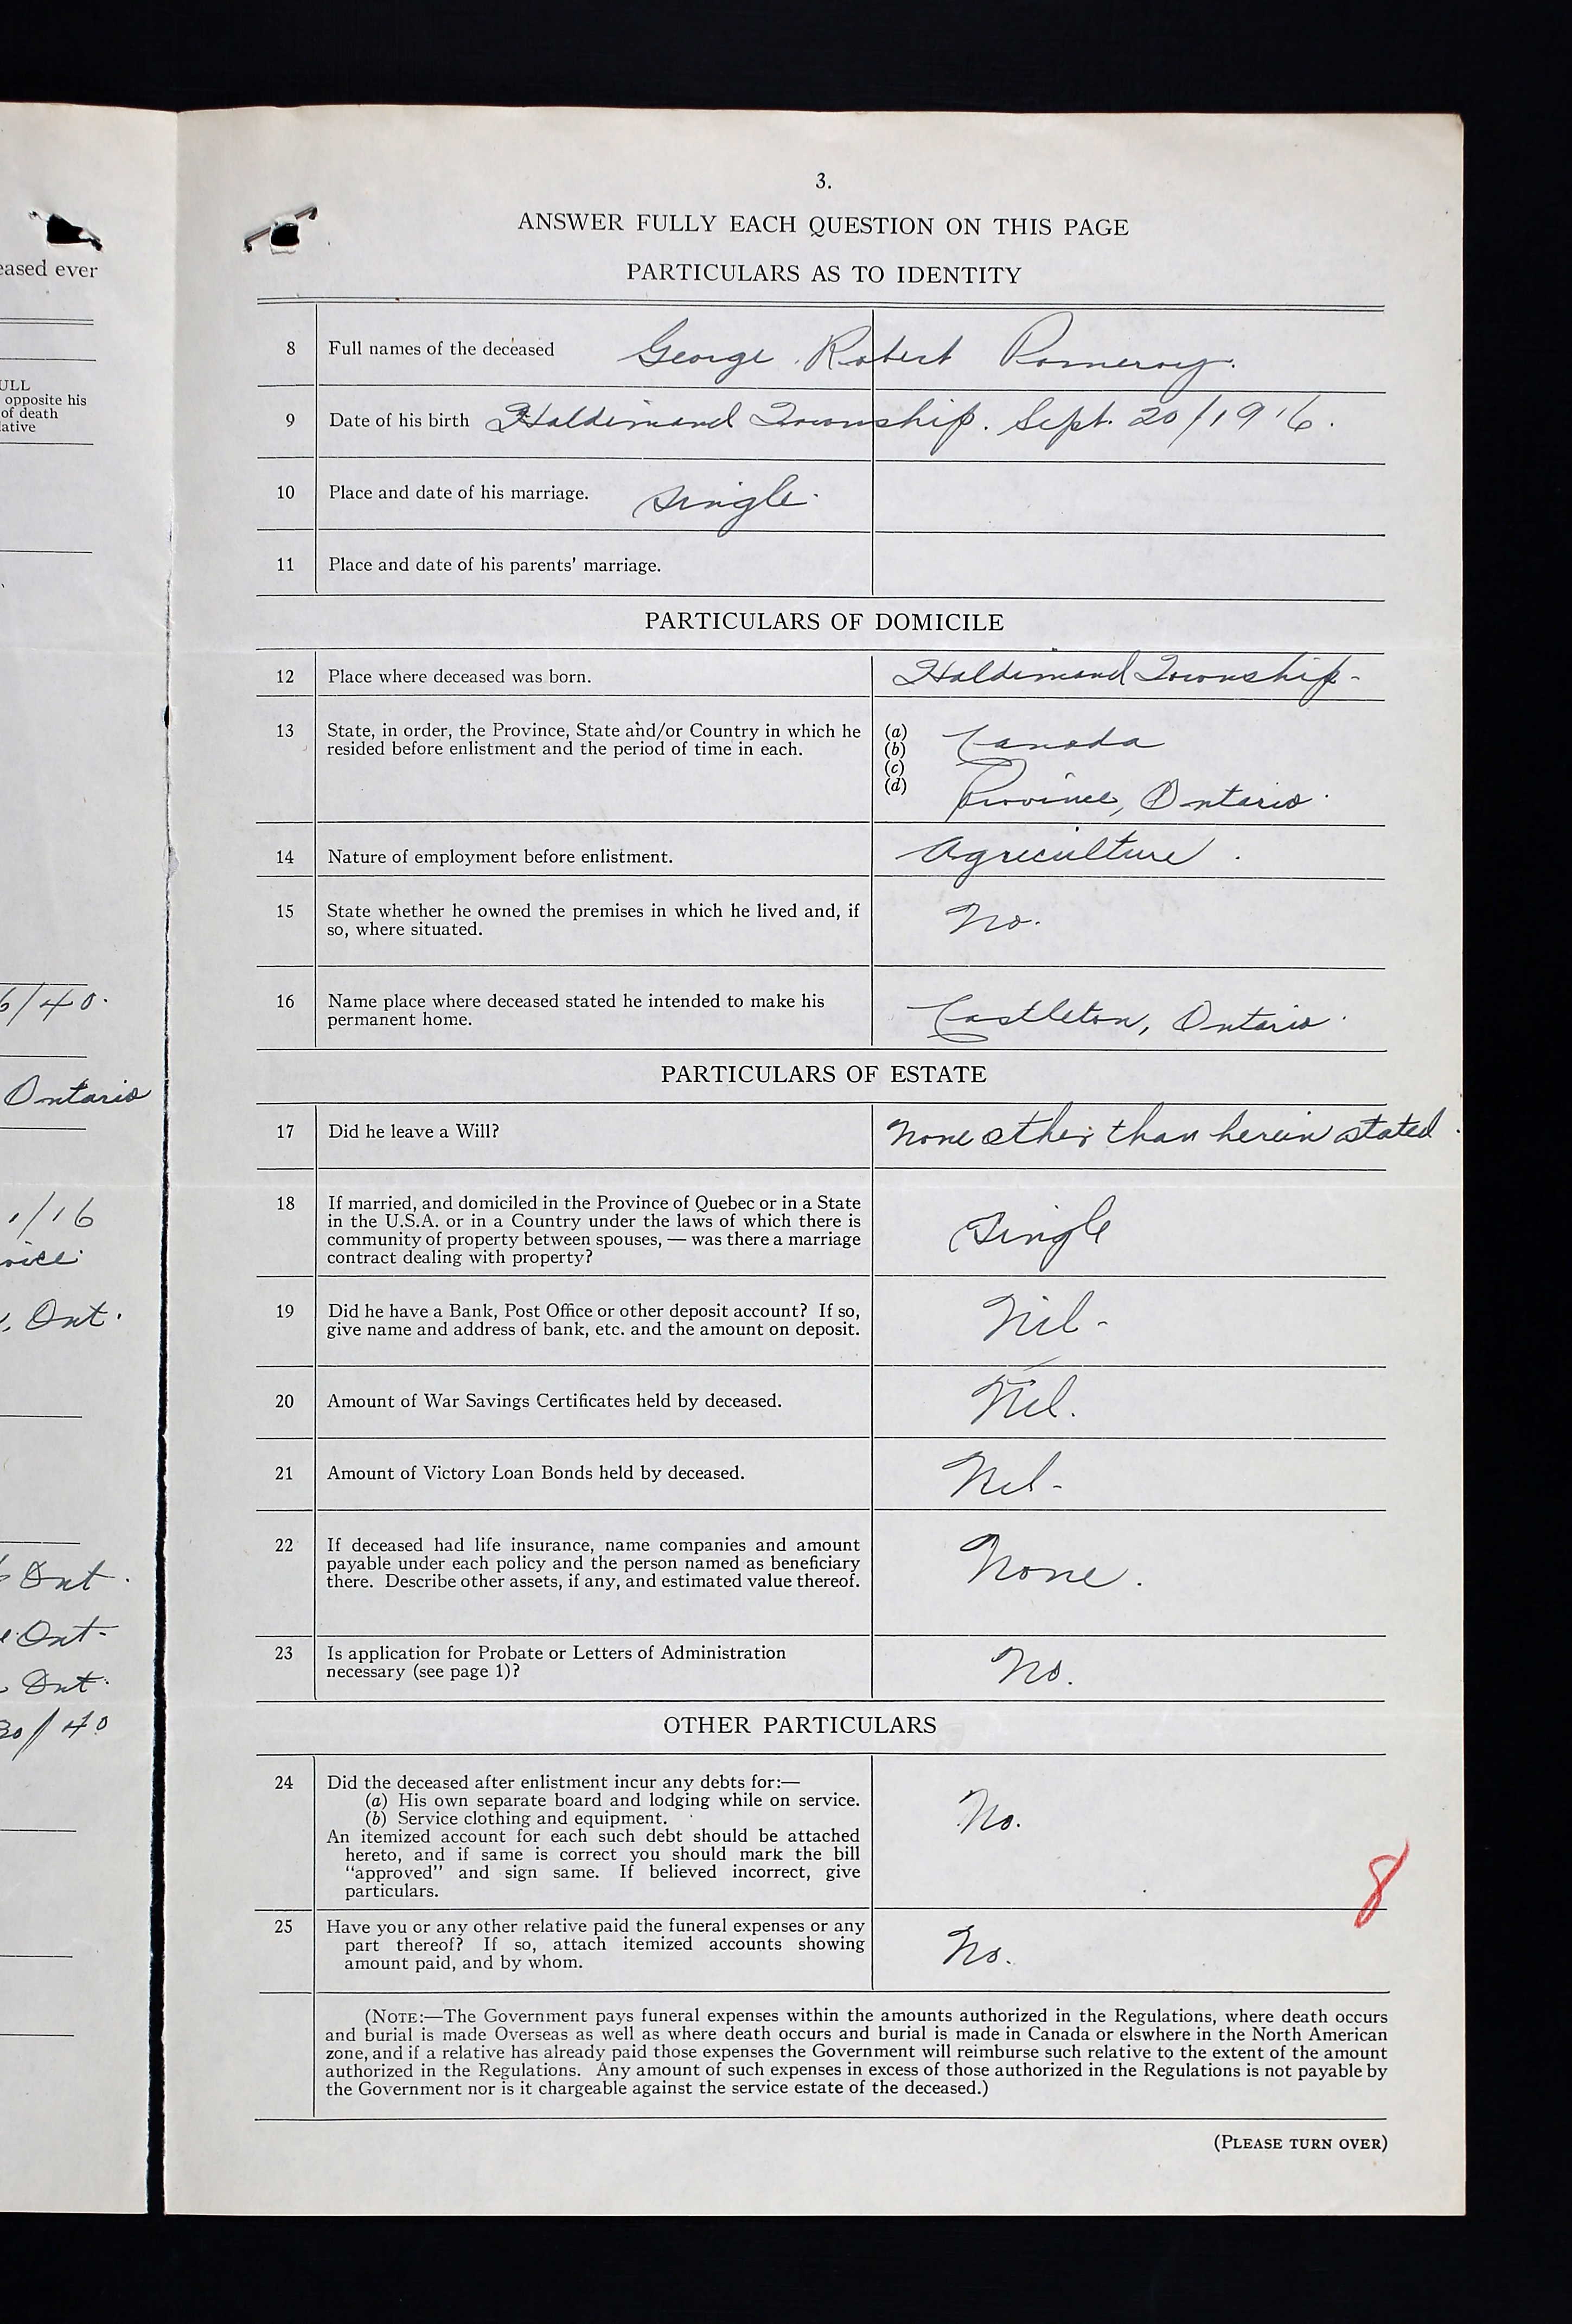 eased ever
ULL
opposite his
of death
ative
6/40.
Ontario
1/16
vice
, Ont.
Ont.
Ont-
Ont.
30/40
3.
ANSWER FULLY EACH QUESTION ON THIS PAGE
PARTICULARS AS TO IDENTITY
8 Full names of the deceased George Robert Pomeroy.
9 Date of his birth Haldimand Township. Sept. 20/1916.
10 Place and date of his marriage. Single.
11 Place and date of his parents' marriage.
PARTICULARS OF DOMICILE
12 Place where deceased was born. Haldimand Township-
13 State, in order, the Province, State and/or Country in which he (a)
resided before enlistment and the period of time in each. (b) Canada
(c)
(d) Province, Ontario.
14 Nature of employment before enlistment. Agriculture.
15 State whether he owned the premises in which he lived and, if No.
so, where situated.
16 Name place where deceased stated he intended to make his
permanent home. Castleton, Ontario.
PARTICULARS OF ESTATE
17 Did he leave a Will? None other than herein stated.
18 If married, and domiciled in the Province of Quebec or in a State
in the U.S.A. or in a Country under the laws of which there is Single
community of property between spouses, — was there a marriage
contract dealing with property?
19 Did he have a Bank, Post Office or other deposit account? If so, Nil-
give name and address of bank, etc. and the amount on deposit.
20 Amount of War Savings Certificates held by deceased. Nil.
21 Amount of Victory Loan Bonds held by deceased. Nil-
22 If deceased had life insurance, name companies and amount
payable under each policy and the person named as beneficiary None.
there. Describe other assets, if any, and estimated value thereof.
23 Is application for Probate or Letters of Administration
necessary (see page 1)? No.
OTHER PARTICULARS
24 Did the deceased after enlistment incur any debts for:—
(a) His own separate board and lodging while on service.
(b) Service clothing and equipment. No.
An itemized account for each such debt should be attached
hereto, and if same is correct you should mark the bill
"approved" and sign same. If believed incorrect, give
particulars.
8
25 Have you or any other relative paid the funeral expenses or any
part thereof? If so, attach itemized accounts showing No.
amount paid, and by whom.
(NOTE:—The Government pays funeral expenses within the amounts authorized in the Regulations, where death occurs
and burial is made Overseas as well as where death occurs and burial is made in Canada or elswhere in the North American
zone, and if a relative has already paid those expenses the Government will reimburse such relative to the extent of the amount
authorized in the Regulations. Any amount of such expenses in excess of those authorized in the Regulations is not payable by
the Government nor is it chargeable against the service estate of the deceased.)
(PLEASE TURN OVER)